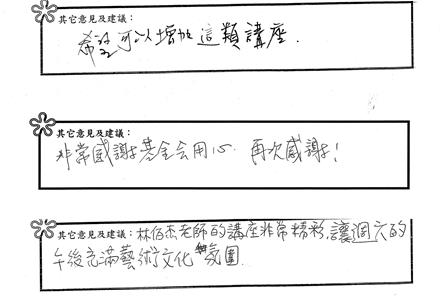 其它意見及建議：
希望可以增加這類講座.
其它意見及建議：
非常感謝基金会用心. 再次感謝!
其它意見及建議：林伯杰老師的講座非常精彩,讓週六的
午後充滿藝術文化氛圍.